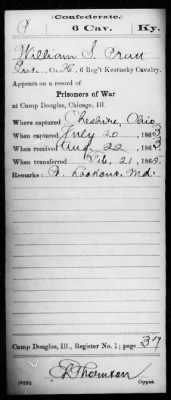 (Confederate.)
P 6 Cav. Ky.
William S.
Pvt., Co. H, 6 Reg't Kentucky Cavalry.
Appears on a record of
Prisoners of War
at Camp Douglas, Chicago, Ill.
Where captured Cheshire, Ohio
When captured July 20, 1863
When received Aug. 22, 1863
When transferred Feb. 21, 186
Remarks: Pt. Lookout Md.
Camp Douglas, Ill., Register No. 1; page 37
Thornton
Copyist.